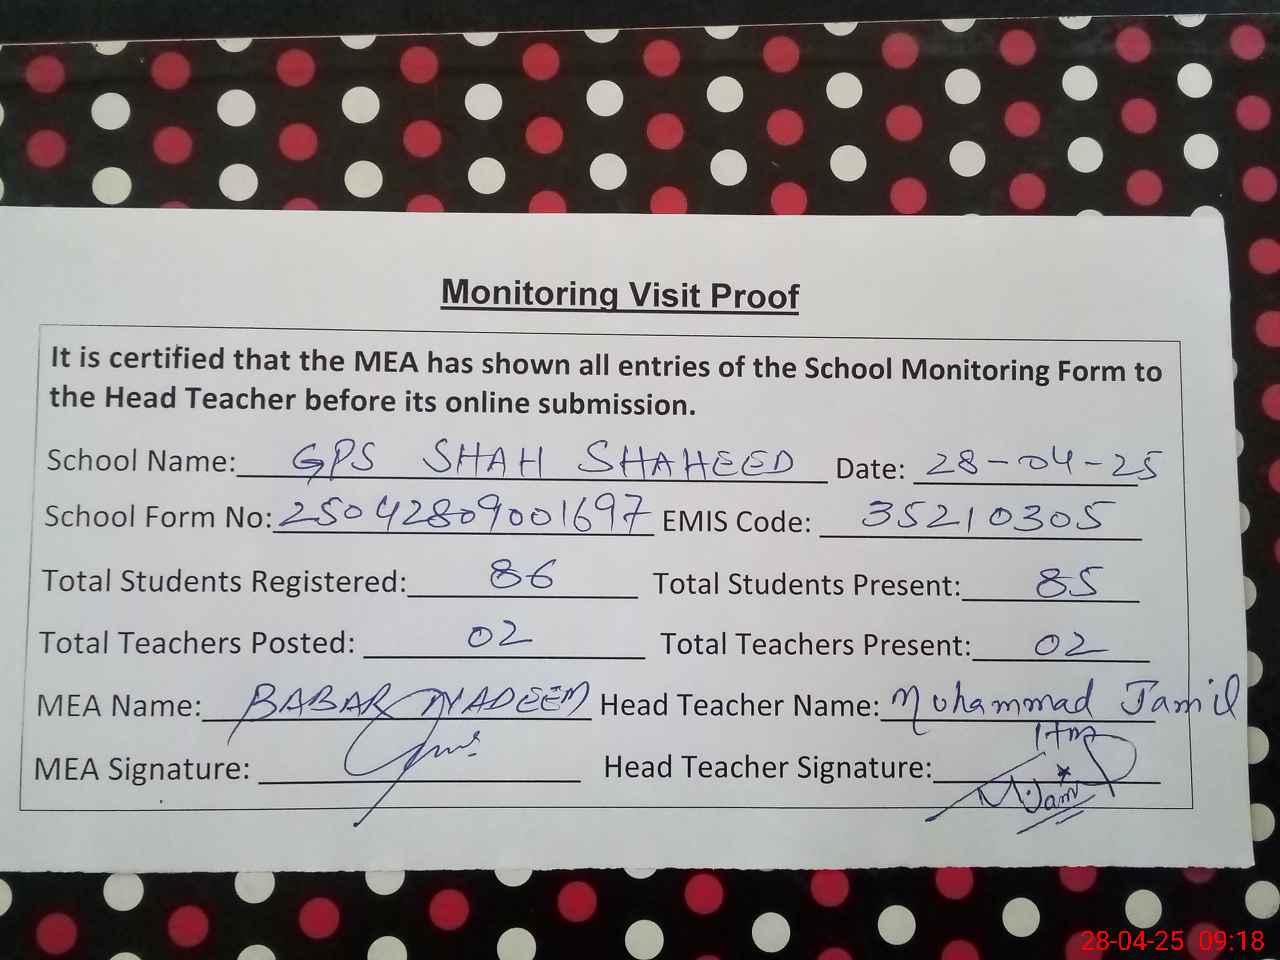 Monitoring Visit Proof
It is certified that the MEA has shown all entries of the School Monitoring Form to
the Head Teacher before its online submission.
School Name: GPS SHAH SHAHEED Date: 28-04-25
School Form No: 25042809001697 EMIS Code: 35210305
Total Students Registered: 86 Total Students Present: 85
Total Teachers Posted: 02 Total Teachers Present: 02
MEA Name: BABAR NADEEM Head Teacher Name: Muhammad Jamil
MEA Signature: Head Teacher Signature:
28-04-25 09:18